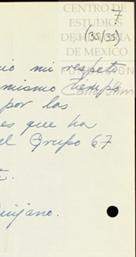 7
CENTRO DE
ESTUDIOS
DE HISTORIA
DE MEXICO
(35/35)
mi respeto
mismo tiempo
por las
es que ha
el Grupo 67
Quijano.